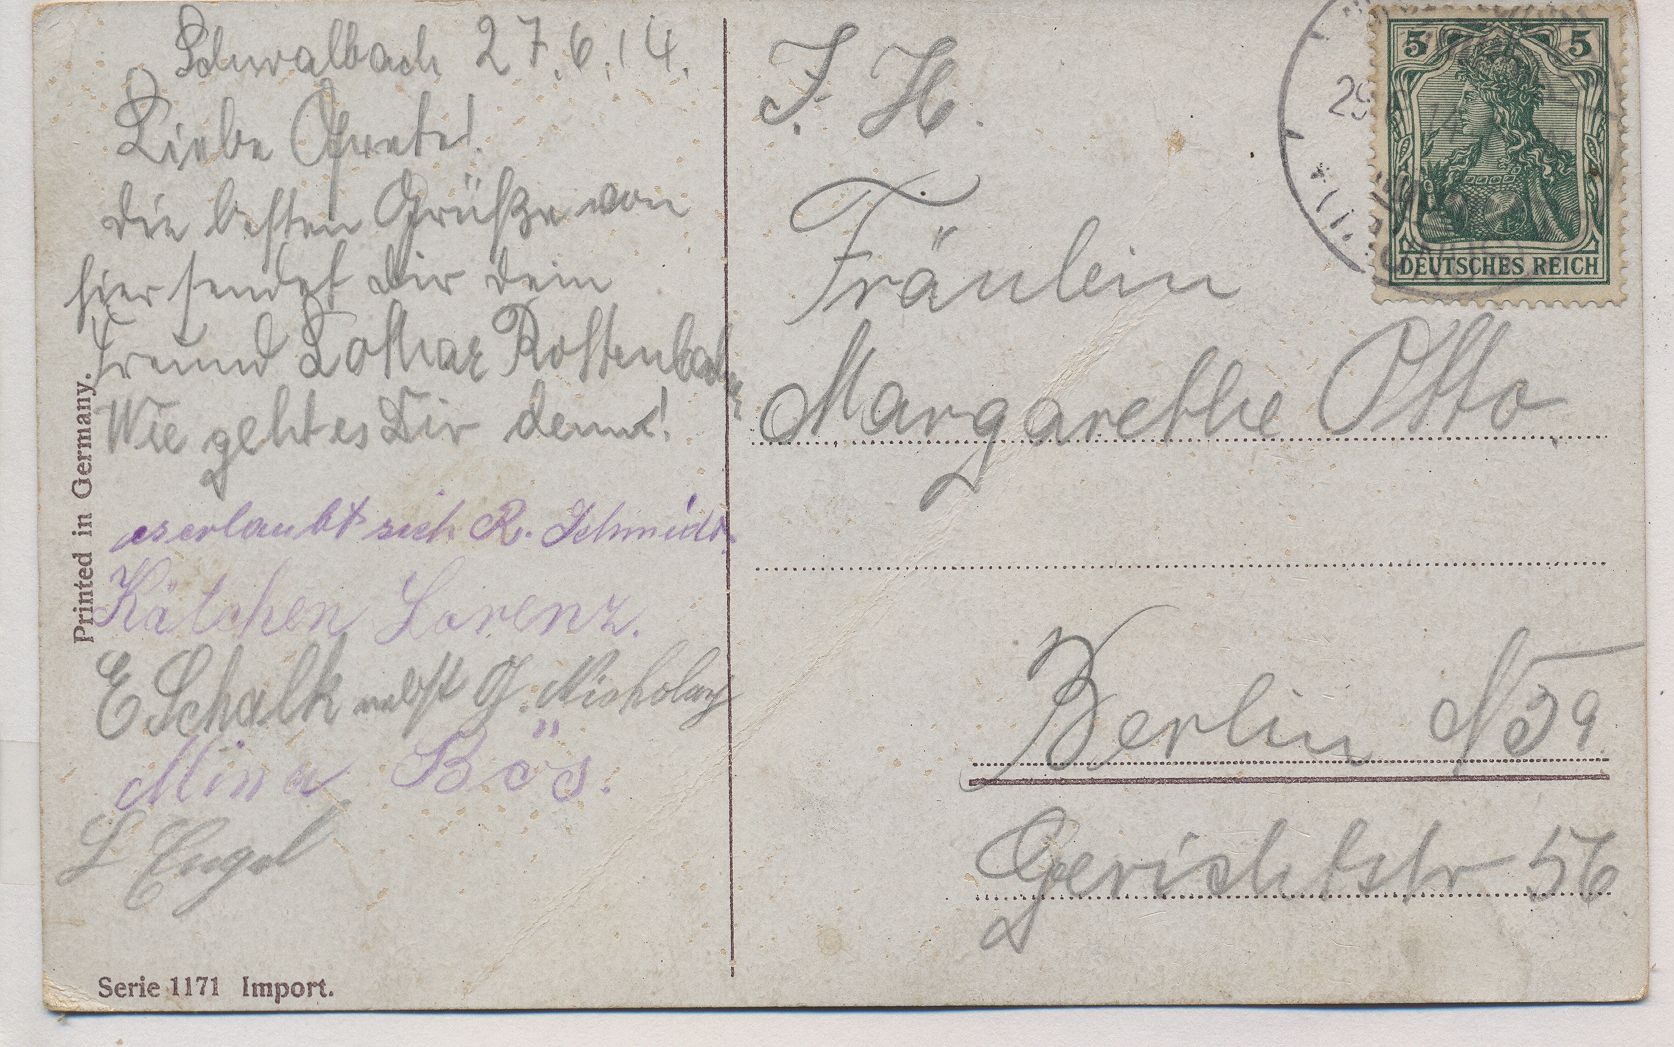 Schwalbach 27.6.14.
Liebe Grete!
die besten Grüße von
hier sendet Dir dein
Freund Lothar Rottenbach
Wie geht es Dir denn!
es erlaubt sich R. Schmidt.
Kätchen Lorenz.
E Schalk nebst G. Nikolay
Mina Bös.
L Engel
Printed in Germany.
Serie 1171 Import.
F. H.
Fräulein
Margarethe Otto.
Berlin N 39.
Gerichtstr 56
5 5
DEUTSCHES REICH
29